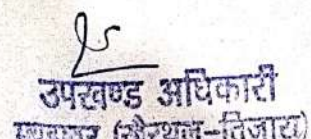 उपखण्ड अधिकारी
(खैरथल-तिजारा)